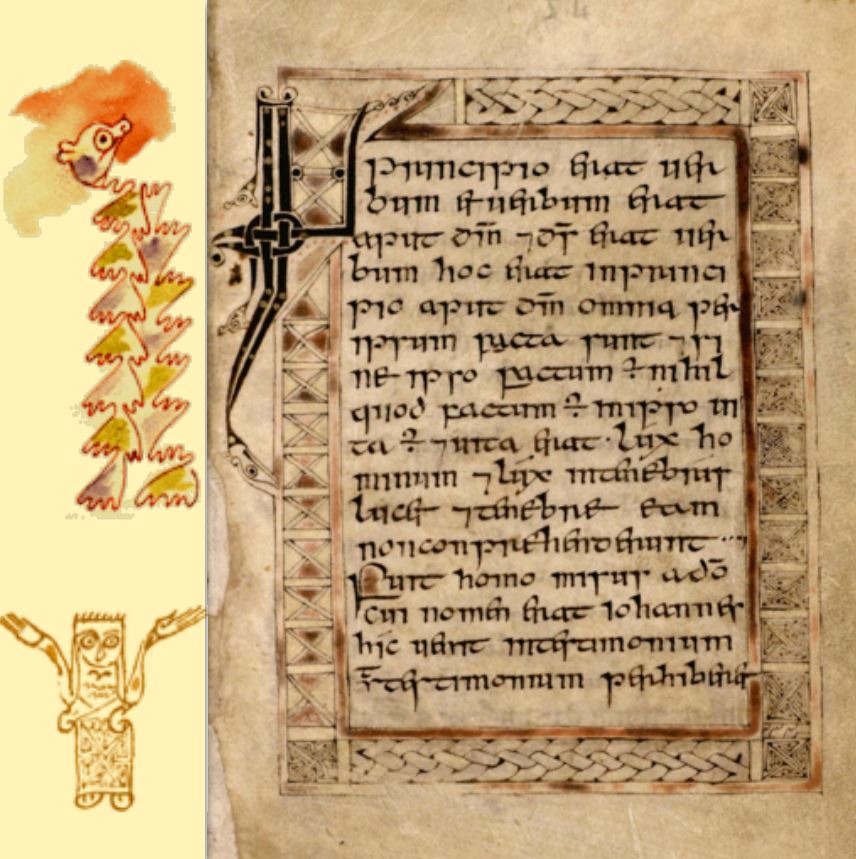 IN principio erat uer
bum & uerbum erat
aput dm̄ ⁊ ds̄ erat uer
bum hoc erat inprinci
pio aput dm̄ omnia per
ipsum facta sunt ⁊ si
ne ipso factum ÷ nihil
quod factum ÷ inipso ui
ta ÷ ⁊ uita erat · lux ho
minum ⁊ lux intenebris
lucet ⁊ tenebre eam
nonconprehenderunt
Fuit homo misus ado̅
cui nomen erat iohannes
hic uenit intestimonium
testimonium perhiberet